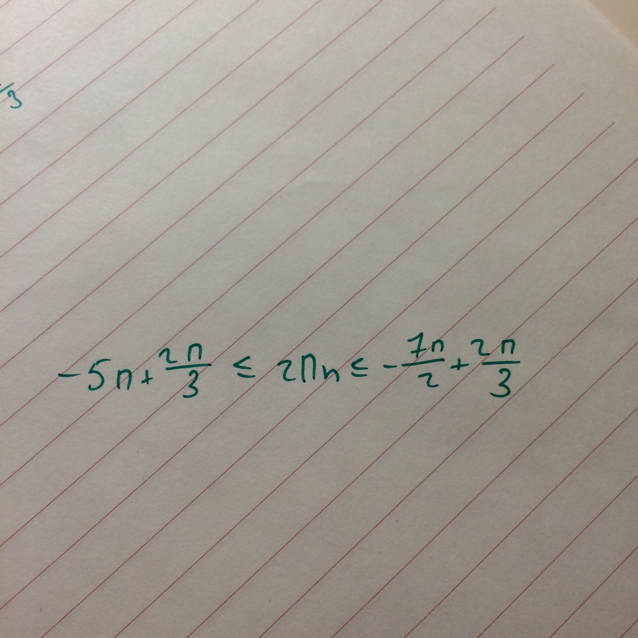 /3
-5π + 2π/3 ≤ 2πn ≤ -7π/2 + 2π/3